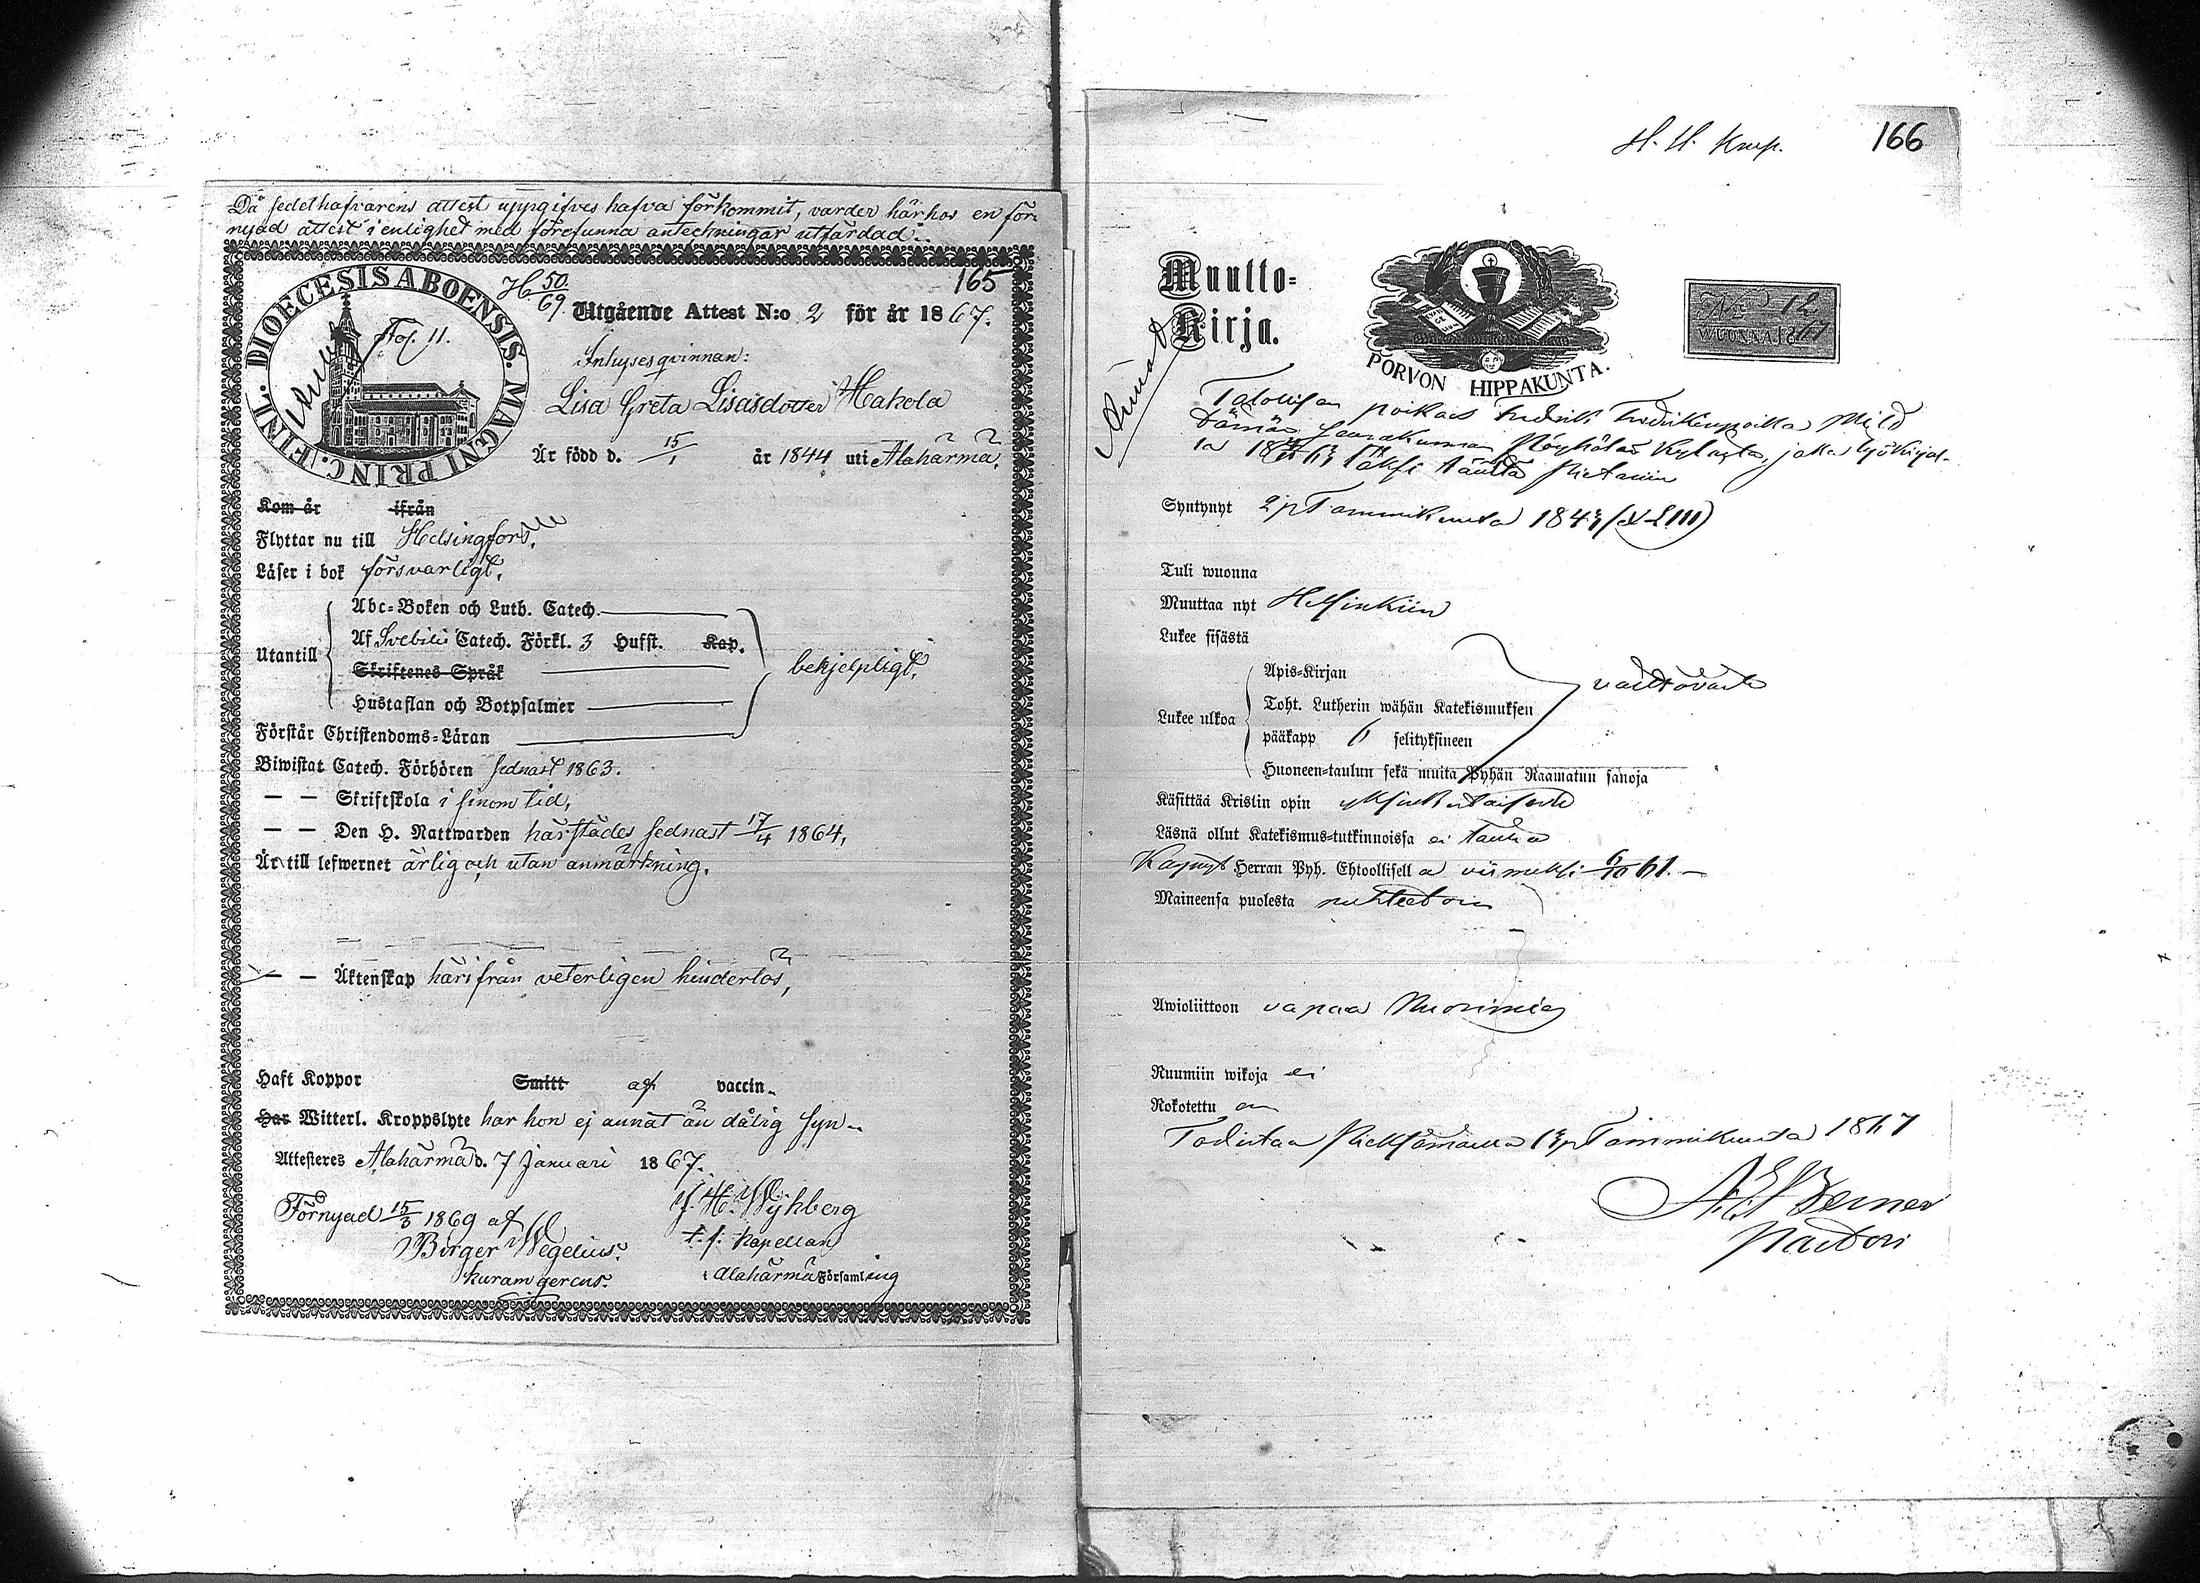 Då sedelhafvarens attest uppgifves hafva förkommit, varder härhos en för-
nyad attest i enlighet med förefunna anteckningar utfärdad.
165
FINL. DIOECESIS ABOENSIS. MAGNI PRINC.
Fol. 11.
50
69
Utgående Attest N:o 2 för år 1867.
Inhysesqvinnan:
Lisa Greta Lisasdotter Hakola
Är född d. 15/1 år 1844 uti Alahärmä.
Kom år ifrån
Flyttar nu till Helsingfors.
Läser i bok försvarligt.
Utantill
Abc-Boken och Luth. Catech.
Af Svebilii Catech. Förkl. 3 Hufst. Kap.
Skriftenes Språk
bekjelpligt.
Hustaflan och Botpsalmer
Förstår Christendoms-Läran
Biwistat Catech. Förhören sednast 1863.
— — Skriftskola i sinom tid,
— — Den H. Nattwarden härstädes sednast 17/4 1864,
Är till lefwernet ärlig och utan anmärkning.
— — Äktenskap härifrån veterligen hinderlös,
Haft Koppor Smitt af vaccin.
Har Witterl. Kroppslyte har hon ej annat än dålig syn.
Attesteres Alahärmä d. 7 Januari 1867.
Förnyad 15/3 1869 af
Birger Wegelius.
kuram gerens.
J. H. Wijkberg
t. f. Kapellan
i Alahärmä Församling
H. H. Knip.
166
Muutto-
Kirja.
PORVON HIPPAKUNTA.
No 12
WUONNA 1867
Talollisen poikais Fredrik Fredrikinpoika Mild
tämän seurakunnan kylästä, joka työkirjal-
la läksi täältä
Syntynyt 2 p Tammikuuta 1843 (XLIII)
Tuli wuonna
Muuttaa nyt Helsinkiin
Lukee sisästä
Lukee ulkoa
Apis-Kirjan
Toht. Lutherin wähän Katekismuksen
pääkapp 6 selityksineen
Huoneen-taulun sekä muita Pyhän Raamatun sanoja
välttävästi
Käsittää Kristin opin yksinkertaisesti
Läsnä ollut Katekismus-tutkinnoissa ei täällä
Käynyt Herran Pyh. Ehtoollisella viimeksi 6/10 61. —
Maineensa puolesta nuhteetoin
Awioliittoon vapaa Nuorimies
Ruumiin wikoja ei
Rokotettu on
Todistaa Pieksämällä Tammikuuta 1867
Pastori